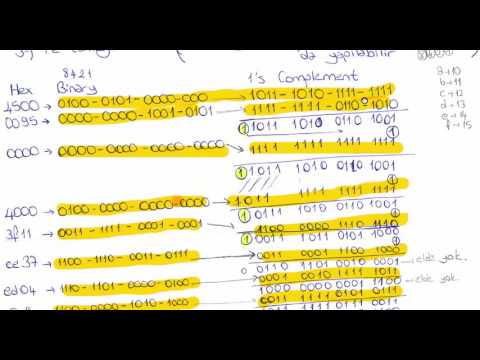 da yapılabilir
8421
Hex Binary 1's Complement
a→10
b→11
c→12
d→13
e→14
f→15
4500 → 0100-0101-0000-000 → 1011-1010-1111-1111
0095 → 0000-0000-1001-0101 → 1111-1111-0110-1010
1 1011 1010 0110 1001
0000 → 0000-0000-0000-0000 → 1111 1111 1111 1111
1 1011 1010 0110 1001
4000 → 0100-0000-0000-0000 → 1011 1111 1111 1111
1 0111 1010 0110 1001
3f11 → 0011-1111-0001-0001 → 1100 0000 1110 1110
1 0011 1011 0101 1000
ce37 → 1100-1110-0011-0111 → 0011 0001 1100 1000
0 0110 1101 0010 0001 → elde yok.
ed04 → 1110-1101-0000-0100 → 0001 0010 1111 1011
1000 0000 0001 → elde yok.
0000-1010-1000 → 0011 1111 0101 0111